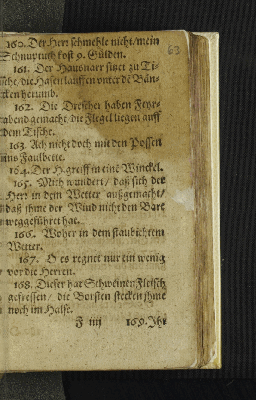 63
160. Der Herr schmehle nicht/mein
Schnuptuch kost 9. Gülden.
161. Der Hausnarr sitzet zu Ti-
sche/ die Hasen lauffen unter dē Bän-
cken herumb.
162. Die Drescher haben Feyr-
abend gemacht/ die Flegel liegen auff
dem Tische.
163. Ach nicht doch mit den Possen
ins Faulbette.
164. Der H. greiff in eine Winckel.
165. Mich wundert/ daß sich der
Herr in dem Wetter außgemacht/
daß ihme der Wind nicht den Bart
weggeführet hat.
166. Woher in dem staubichten
Wetter.
167. O es regnet nur ein wenig
vor die Herren.
168. Dieser hat Schweinen Fleisch
gefressen/ die Borsten stecken ihme
noch im Halse.
F iiij 169. Ihr